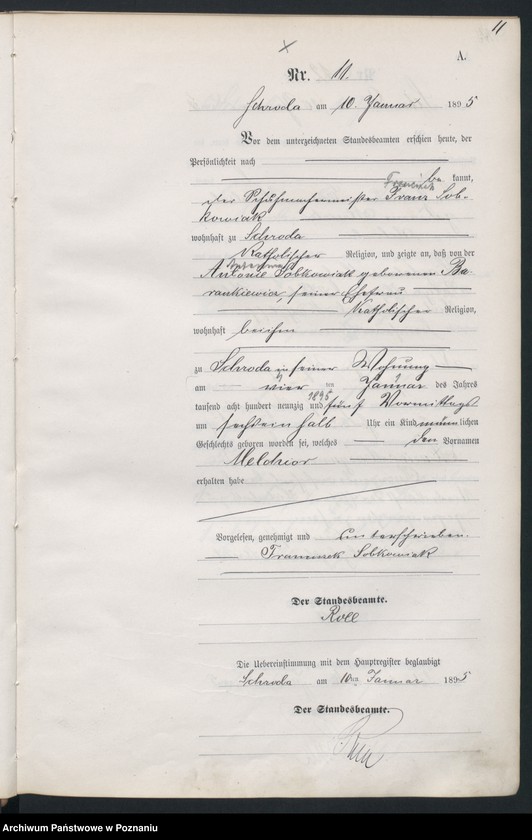 11
A.
Nr. 11.
Schroda am 10. Januar 1895
Vor dem unterzeichneten Standesbeamten erschien heute, der
Persönlichkeit nach
be kannt,
Franciszek
der Schuhmachermeister Franz Sob-
kowiak
wohnhaft zu Schroda
Katholischer Religion, und zeigte an, daß von der
Antonie Sobkowiak geborenen Ba-
rankiewicz, seiner Ehefrau
Katholischer Religion,
wohnhaft bei ihm
zu Schroda in seiner Wohnung
am vier ten Januar des Jahres
1895
tausend acht hundert neunzig und fünf Vormittags
um sechseinhalb Uhr ein Kind männlichen
Geschlechts geboren worden sei, welches den Vornamen
Melchior
erhalten habe
Vorgelesen, genehmigt und unterschrieben.
Franciszek Sobkowiak
Der Standesbeamte.
Roll
Die Uebereinstimmung mit dem Hauptregister beglaubigt
Schroda am 10ten Januar 1895
Der Standesbeamte.
Archiwum Państwowe w Poznaniu